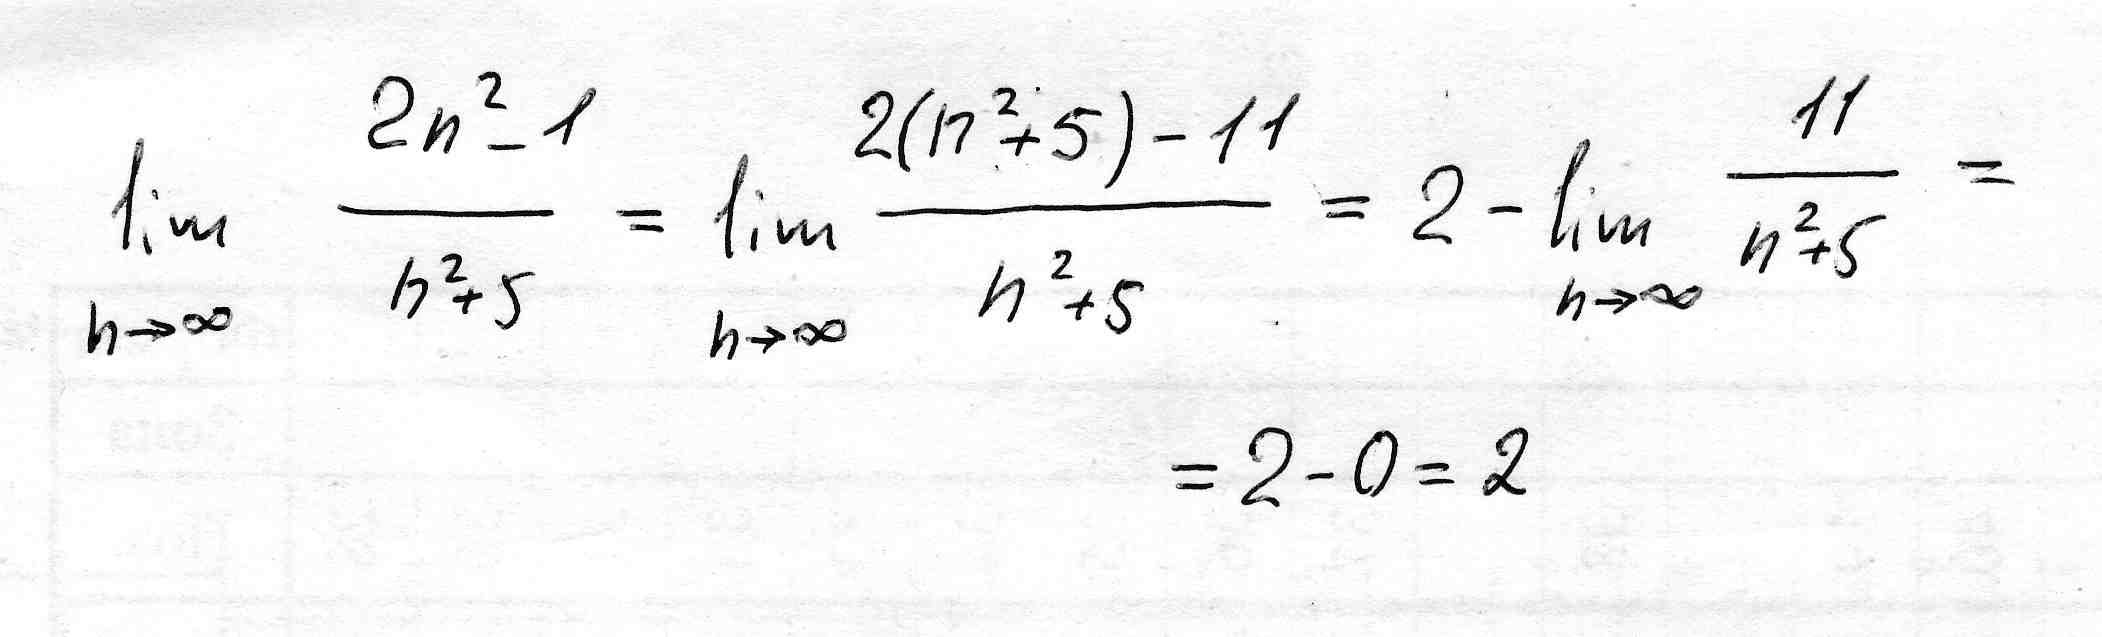 lim n→∞ (2n²-1)/(n²+5) = lim n→∞ (2(n²+5)-11)/(n²+5) = 2 - lim n→∞ 11/(n²+5) =
= 2 - 0 = 2